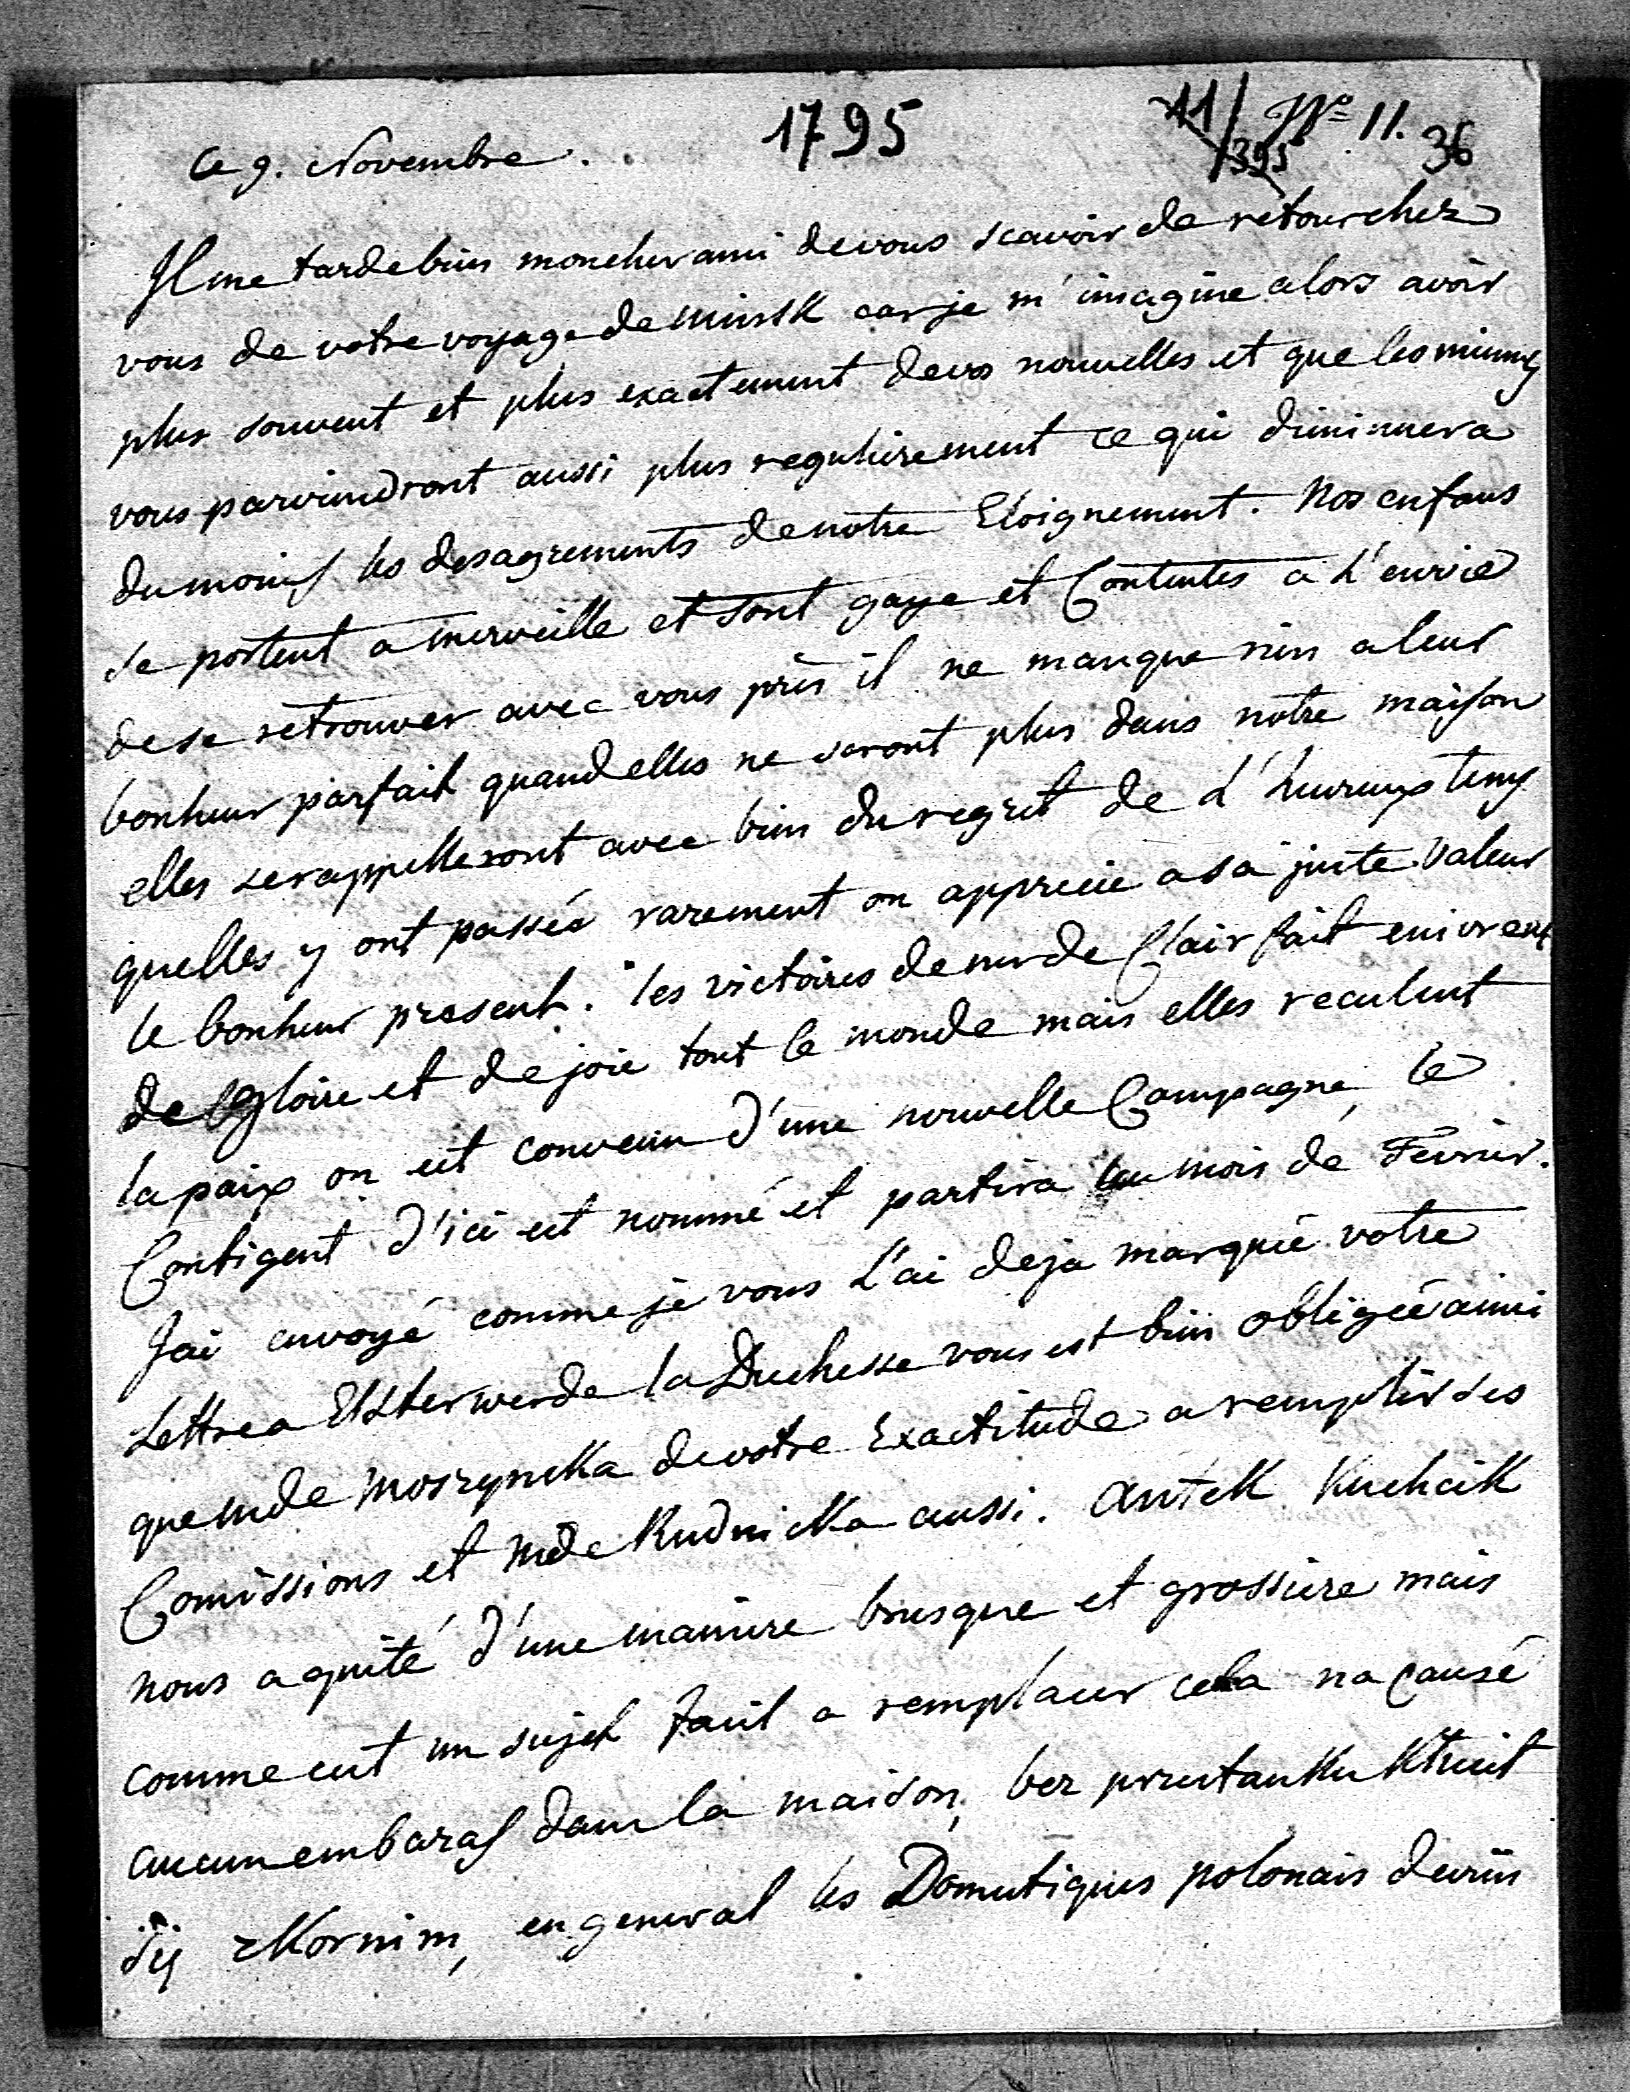 1795
11/395
No 11.
36
Ce 9. Novembre.
Il me tarde bien mon cher ami de vous scavoir de retour chez
vous de votre voyage de minsk car je m'imagine alors avoir
plus souvent et plus exactement de vos nouvelles et que les miennes
vous parviendront aussi plus regulierement ce qui diminuera
du moins les desagrements de notre Eloignement. Nos enfans
se portent a merveille et sont gaye et Contentes a L'envie
de se retrouver avec vous près il ne manque rien a leur
bonheur parfait quand elles ne seront plus dans notre maison
elles se rappelleront avec bien du regret de L'heureux tems
quelles y ont passée rarement on apprecie a sa juste valeur
le bonheur present. les victoires de mr de Clairfait enivrent
de Gloire et de joie tout le monde mais elles reculent
la paix on est convenu d'une nouvelle Campagne, le
Contigent d'ici est nommé et partira au mois de Fevrier.
J'ai envoyé comme je vous L'ai deja marquée votre
Lettre a Elsterwerde la Duchesse vous est bien obligée ainsi
que mde Moszynska de votre Exactitude a remplir ses
Comissions et mde Rudnicka aussi. Antek Kuchcik
nous a quité d'une maniere brusque et grossiere mais
comme cest un sujet facil a remplacer cela na causé
aucun embaras dans la maison, bez przestanku Kłucił
się z Kornim, en general les Domestiques polonais devien